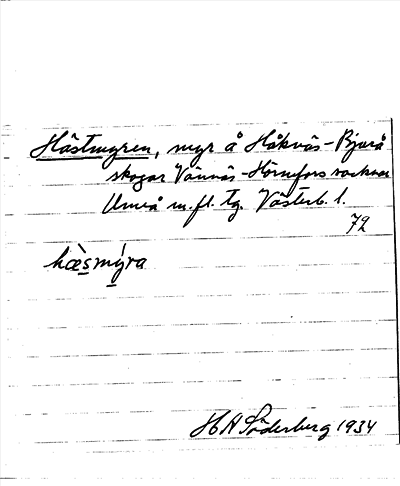 Hästmyren, myr å Håknäs-Bjurå
skogar Vännäs-Hörnefors socknar
Umeå m.fl. tg. Västerb. l.
72
hæ̀smýra
H A Söderberg 1934